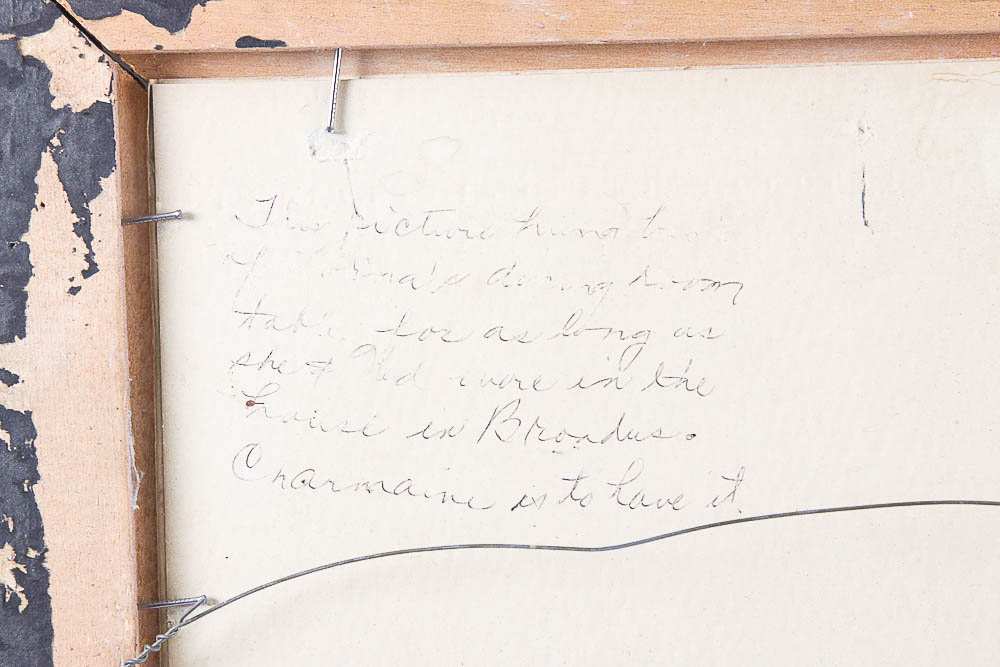 This picture hung
dining room
table for as long as
she & were in the
house in Broadus.
Charmaine is to have it